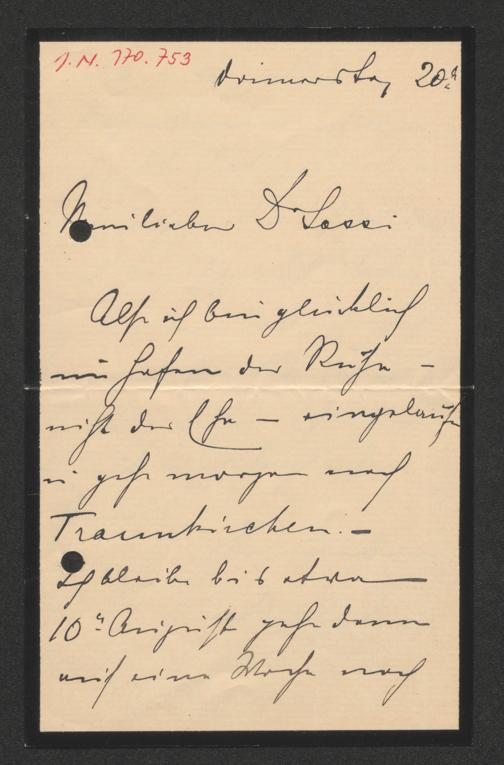 J. N. 170.753
Donnerstag 20t
Mein lieber Dr Sassi
Also ich bin glücklich
im Hafen der Ruhe –
nicht der Ehe – eingelaufen
u gehe morgen nach
Traunkirchen. –
Ich bleibe bis etwa
10t August gehe dann
auf eine Woche nach